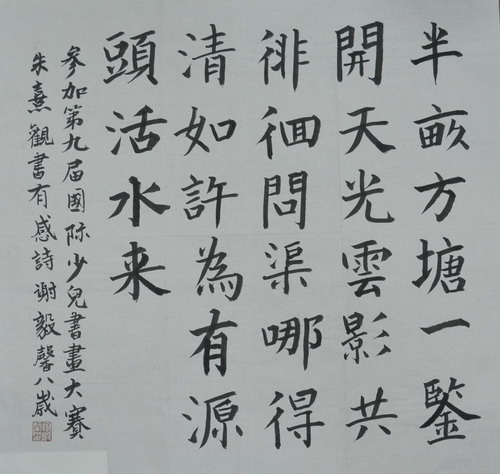 半畝方塘一鑒
開天光雲影共
徘徊問渠哪得
清如許為有源
頭活水来
參加第九届國际少兒書畫大賽
朱熹觀書有感詩谢毅馨八歲